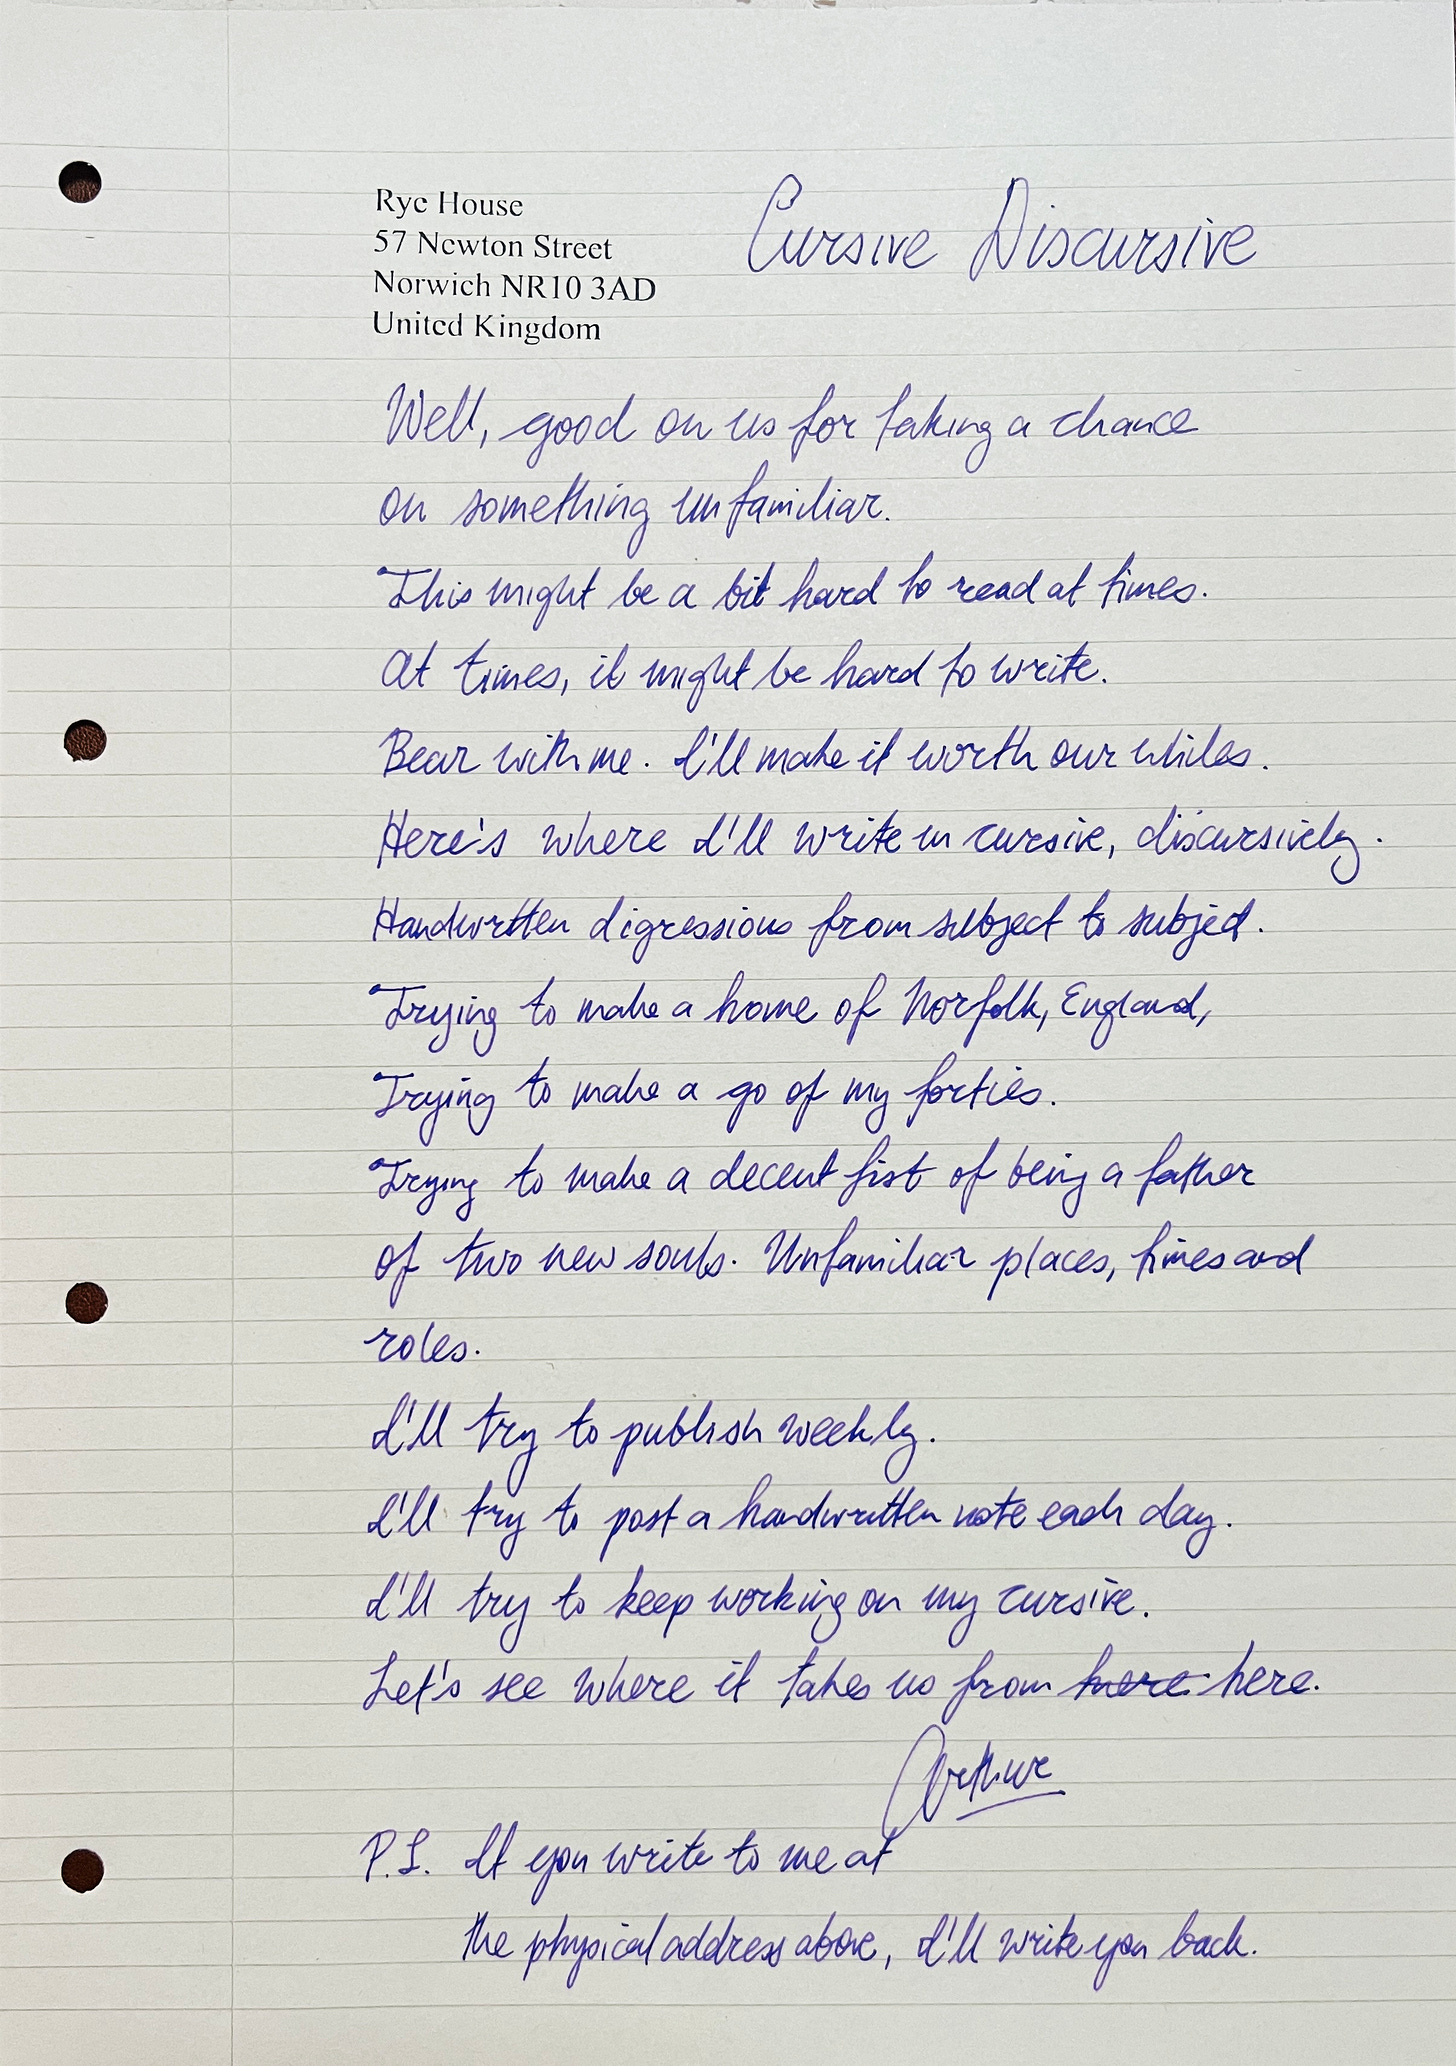 Rye House
57 Newton Street
Norwich NR10 3AD
United Kingdom
Cursive Discursive
Well, good on us for taking a chance
on something unfamiliar.
This might be a bit hard to read at times.
At times, it might be hard to write.
Bear with me. I'll make it worth our whiles.
Here's where I'll write in cursive, discursively.
Handwritten digressions from subject to subject.
Trying to make a home of Norfolk, England,
Trying to make a go of my forties.
Trying to make a decent fist of being a father
of two new souls. Unfamiliar places, times and
roles.
I'll try to publish weekly.
I'll try to post a handwritten note each day.
I'll try to keep working on my cursive.
Let's see where it takes us from here here.
Arthur
P.S. If you write to me at
the physical address above, I'll write you back.